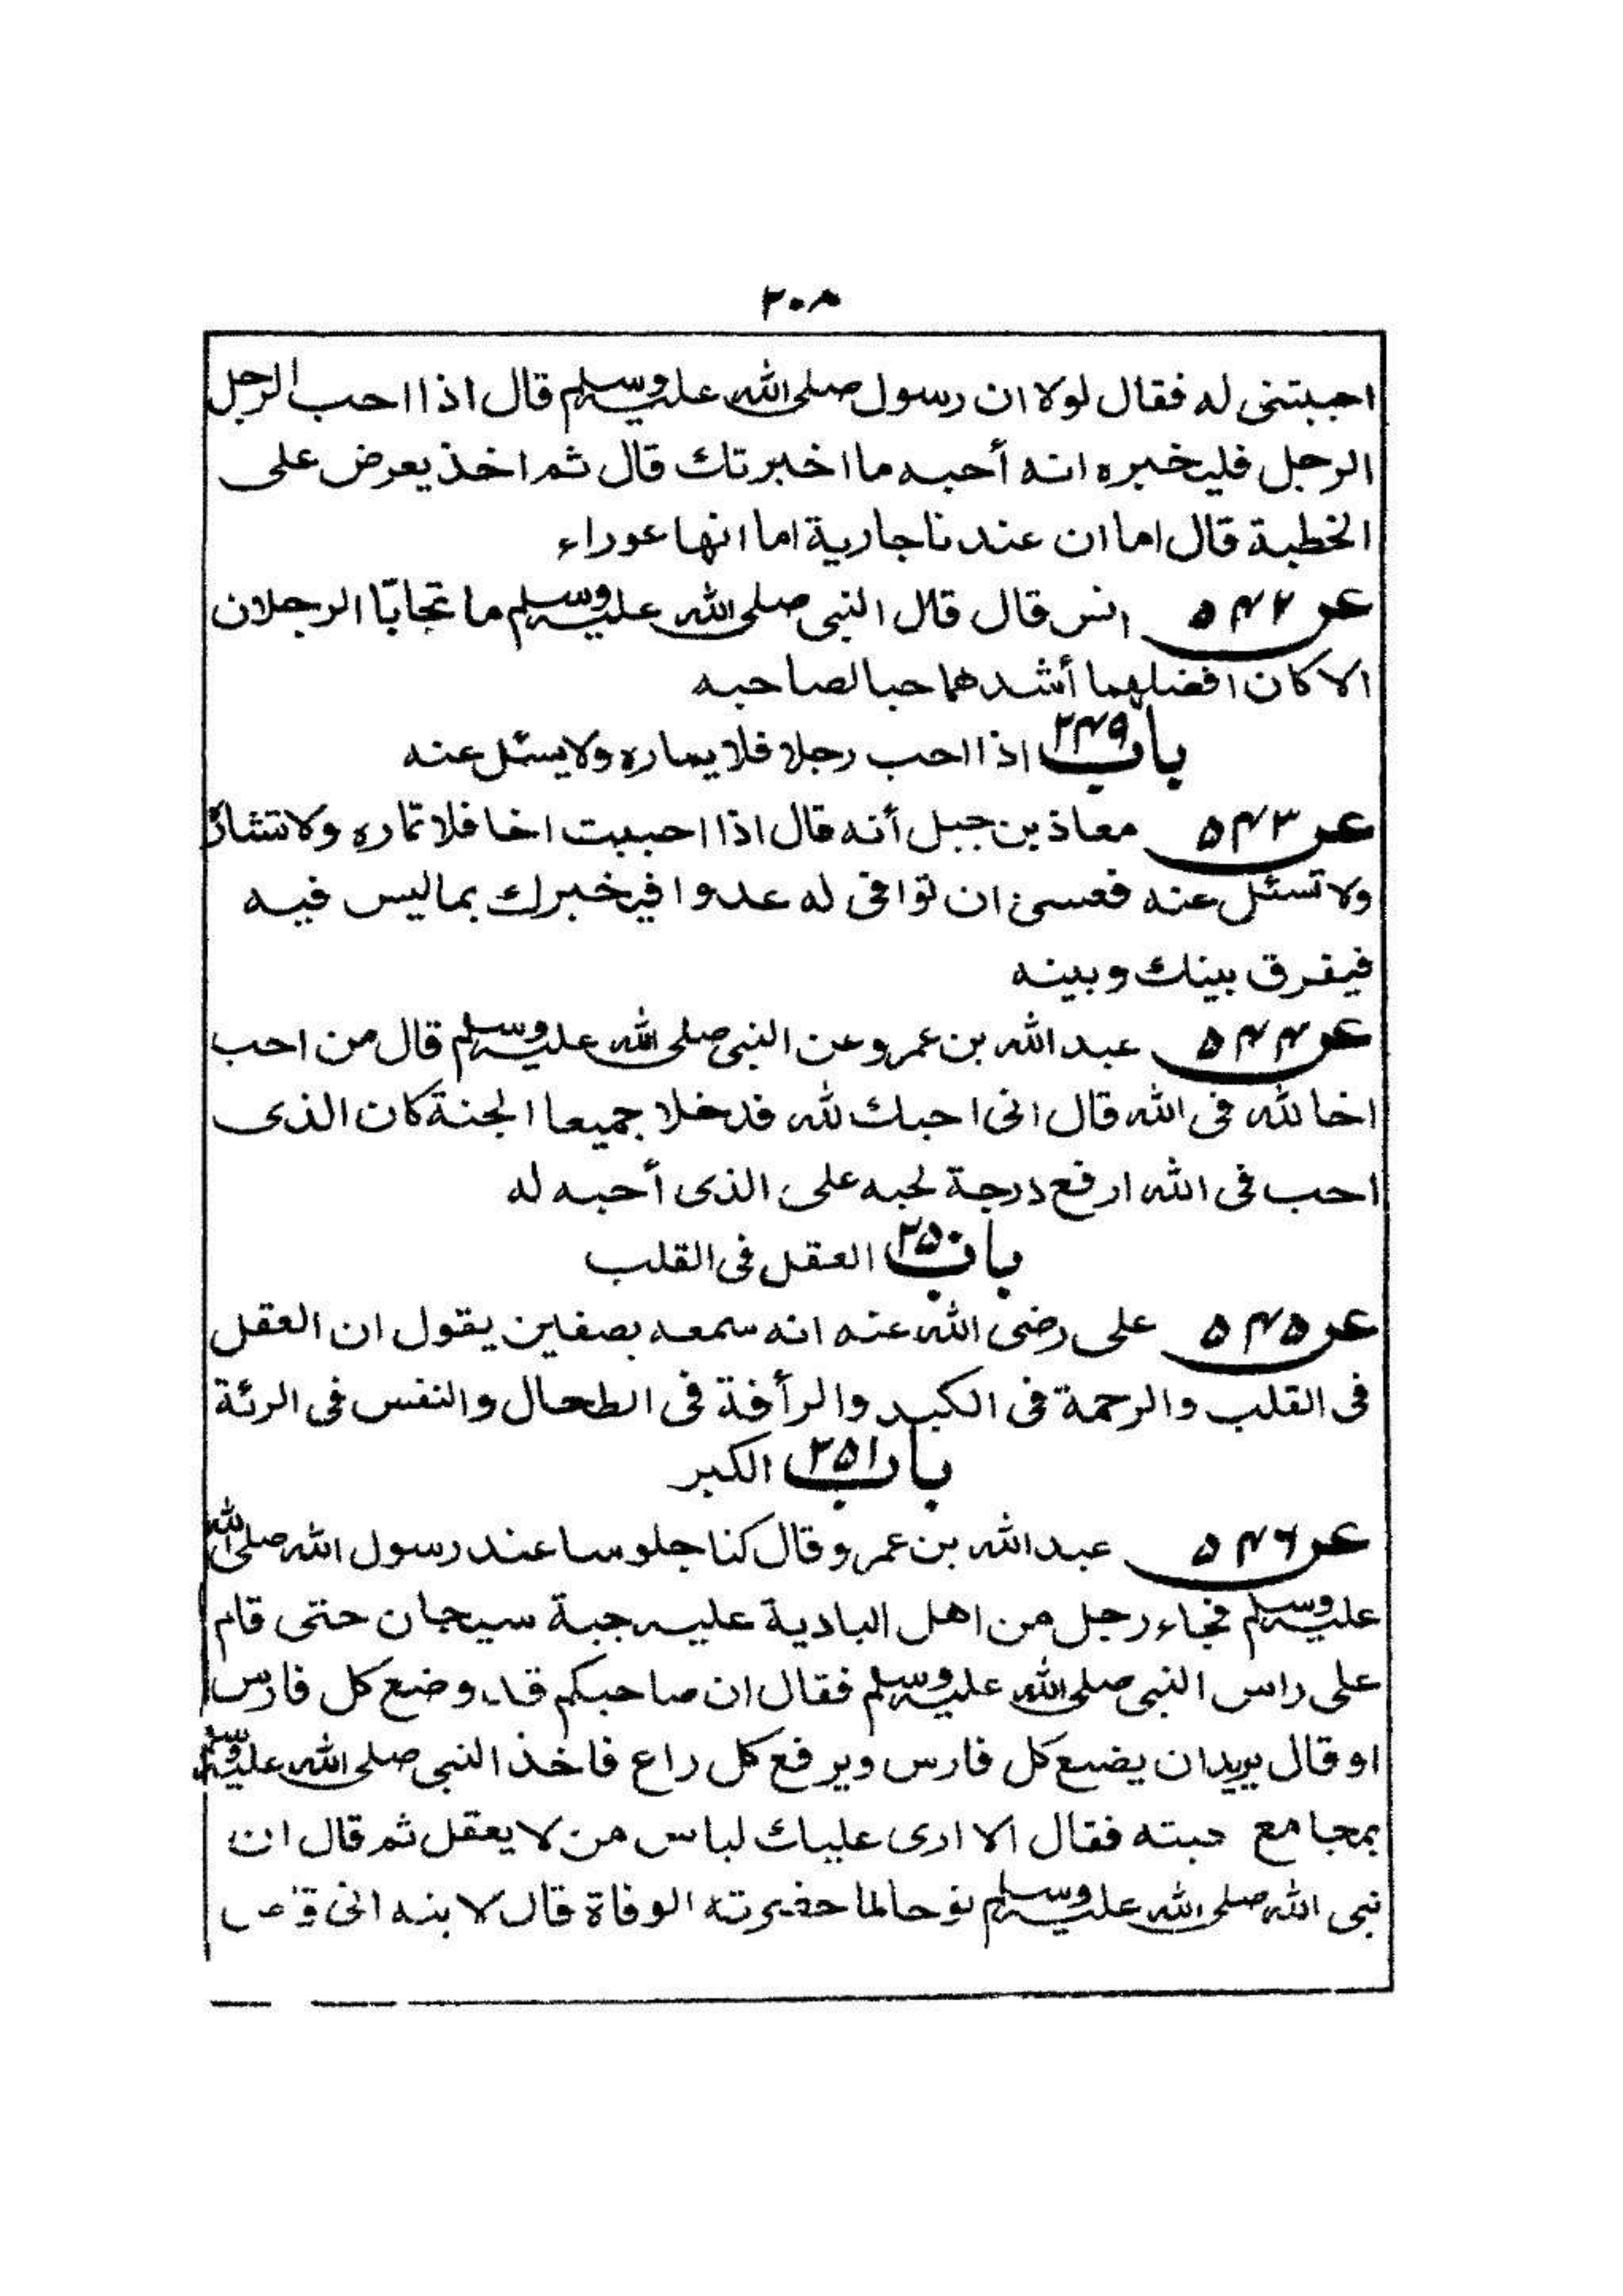 ۲۰۸
احببتنى له فقال لولا ان رسول صلى الله عليه وسلم قال اذا احب الرجل
الرجل فليخبره انه أحبه ما اخبرتك قال ثم اخذ يعرض على
الخطبة قال اما ان عندنا جارية اما انها عوراء
عن ۵۴۲ انس قال قال النبى صلى الله عليه وسلم ما تحابّا الرجلان
الا كان افضلهما أشدهما حبا لصاحبه
باب ۲۴۹ اذا احب رجلا فلا يماره ولا يسئل عنه
عن ۵۴۳ معاذ بن جبل أنه قال اذا احببت اخا فلا تماره ولا تشار
ولا تسئل عنه فعسى ان توافى له عدوا فيخبرك بما ليس فيه
فيفرق بينك وبينه
عن ۵۴۴ عبد الله بن عمرو عن النبى صلى الله عليه وسلم قال من احب
اخا لله فى الله قال انى احبك لله فدخلا جميعا الجنة كان الذى
احب فى الله ارفع درجة لحبه على الذى أحبه له
باب ۲۵۰ العقل فى القلب
عن ۵۴۵ على رضى الله عنه انه سمعه بصفين يقول ان العقل
فى القلب والرحمة فى الكبد والرأفة فى الطحال والنفس فى الرئة
باب ۲۵۱ الكبر
عن ۵۴۶ عبد الله بن عمرو قال كنا جلوسا عند رسول الله صلى الله
عليه وسلم فجاء رجل من اهل البادية عليه جبة سيجان حتى قام
على راس النبى صلى الله عليه وسلم فقال ان صاحبكم قد وضع كل فارس
او قال يريد ان يضع كل فارس ويرفع كل راع فاخذ النبى صلى الله عليه وسلم
بمجامع جبته فقال الا ارى عليك لباس من لا يعقل ثم قال ان
نبى الله صلى الله عليه وسلم نوحا لما حضرته الوفاة قال لابنه انى